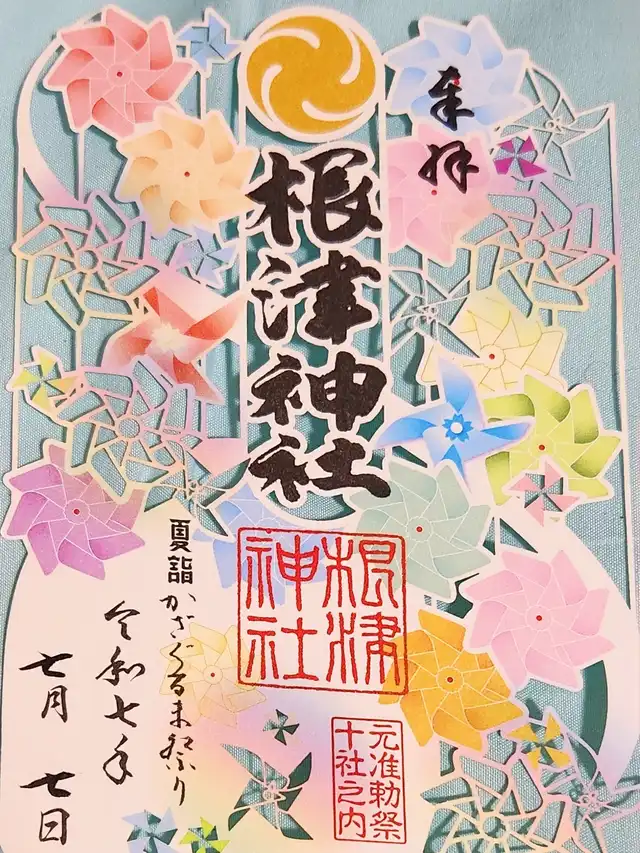 奉拝
根津神社
根津
神社
元准勅祭
十社之内
夏詣
かざぐるま祭り
令和七年
七月七日